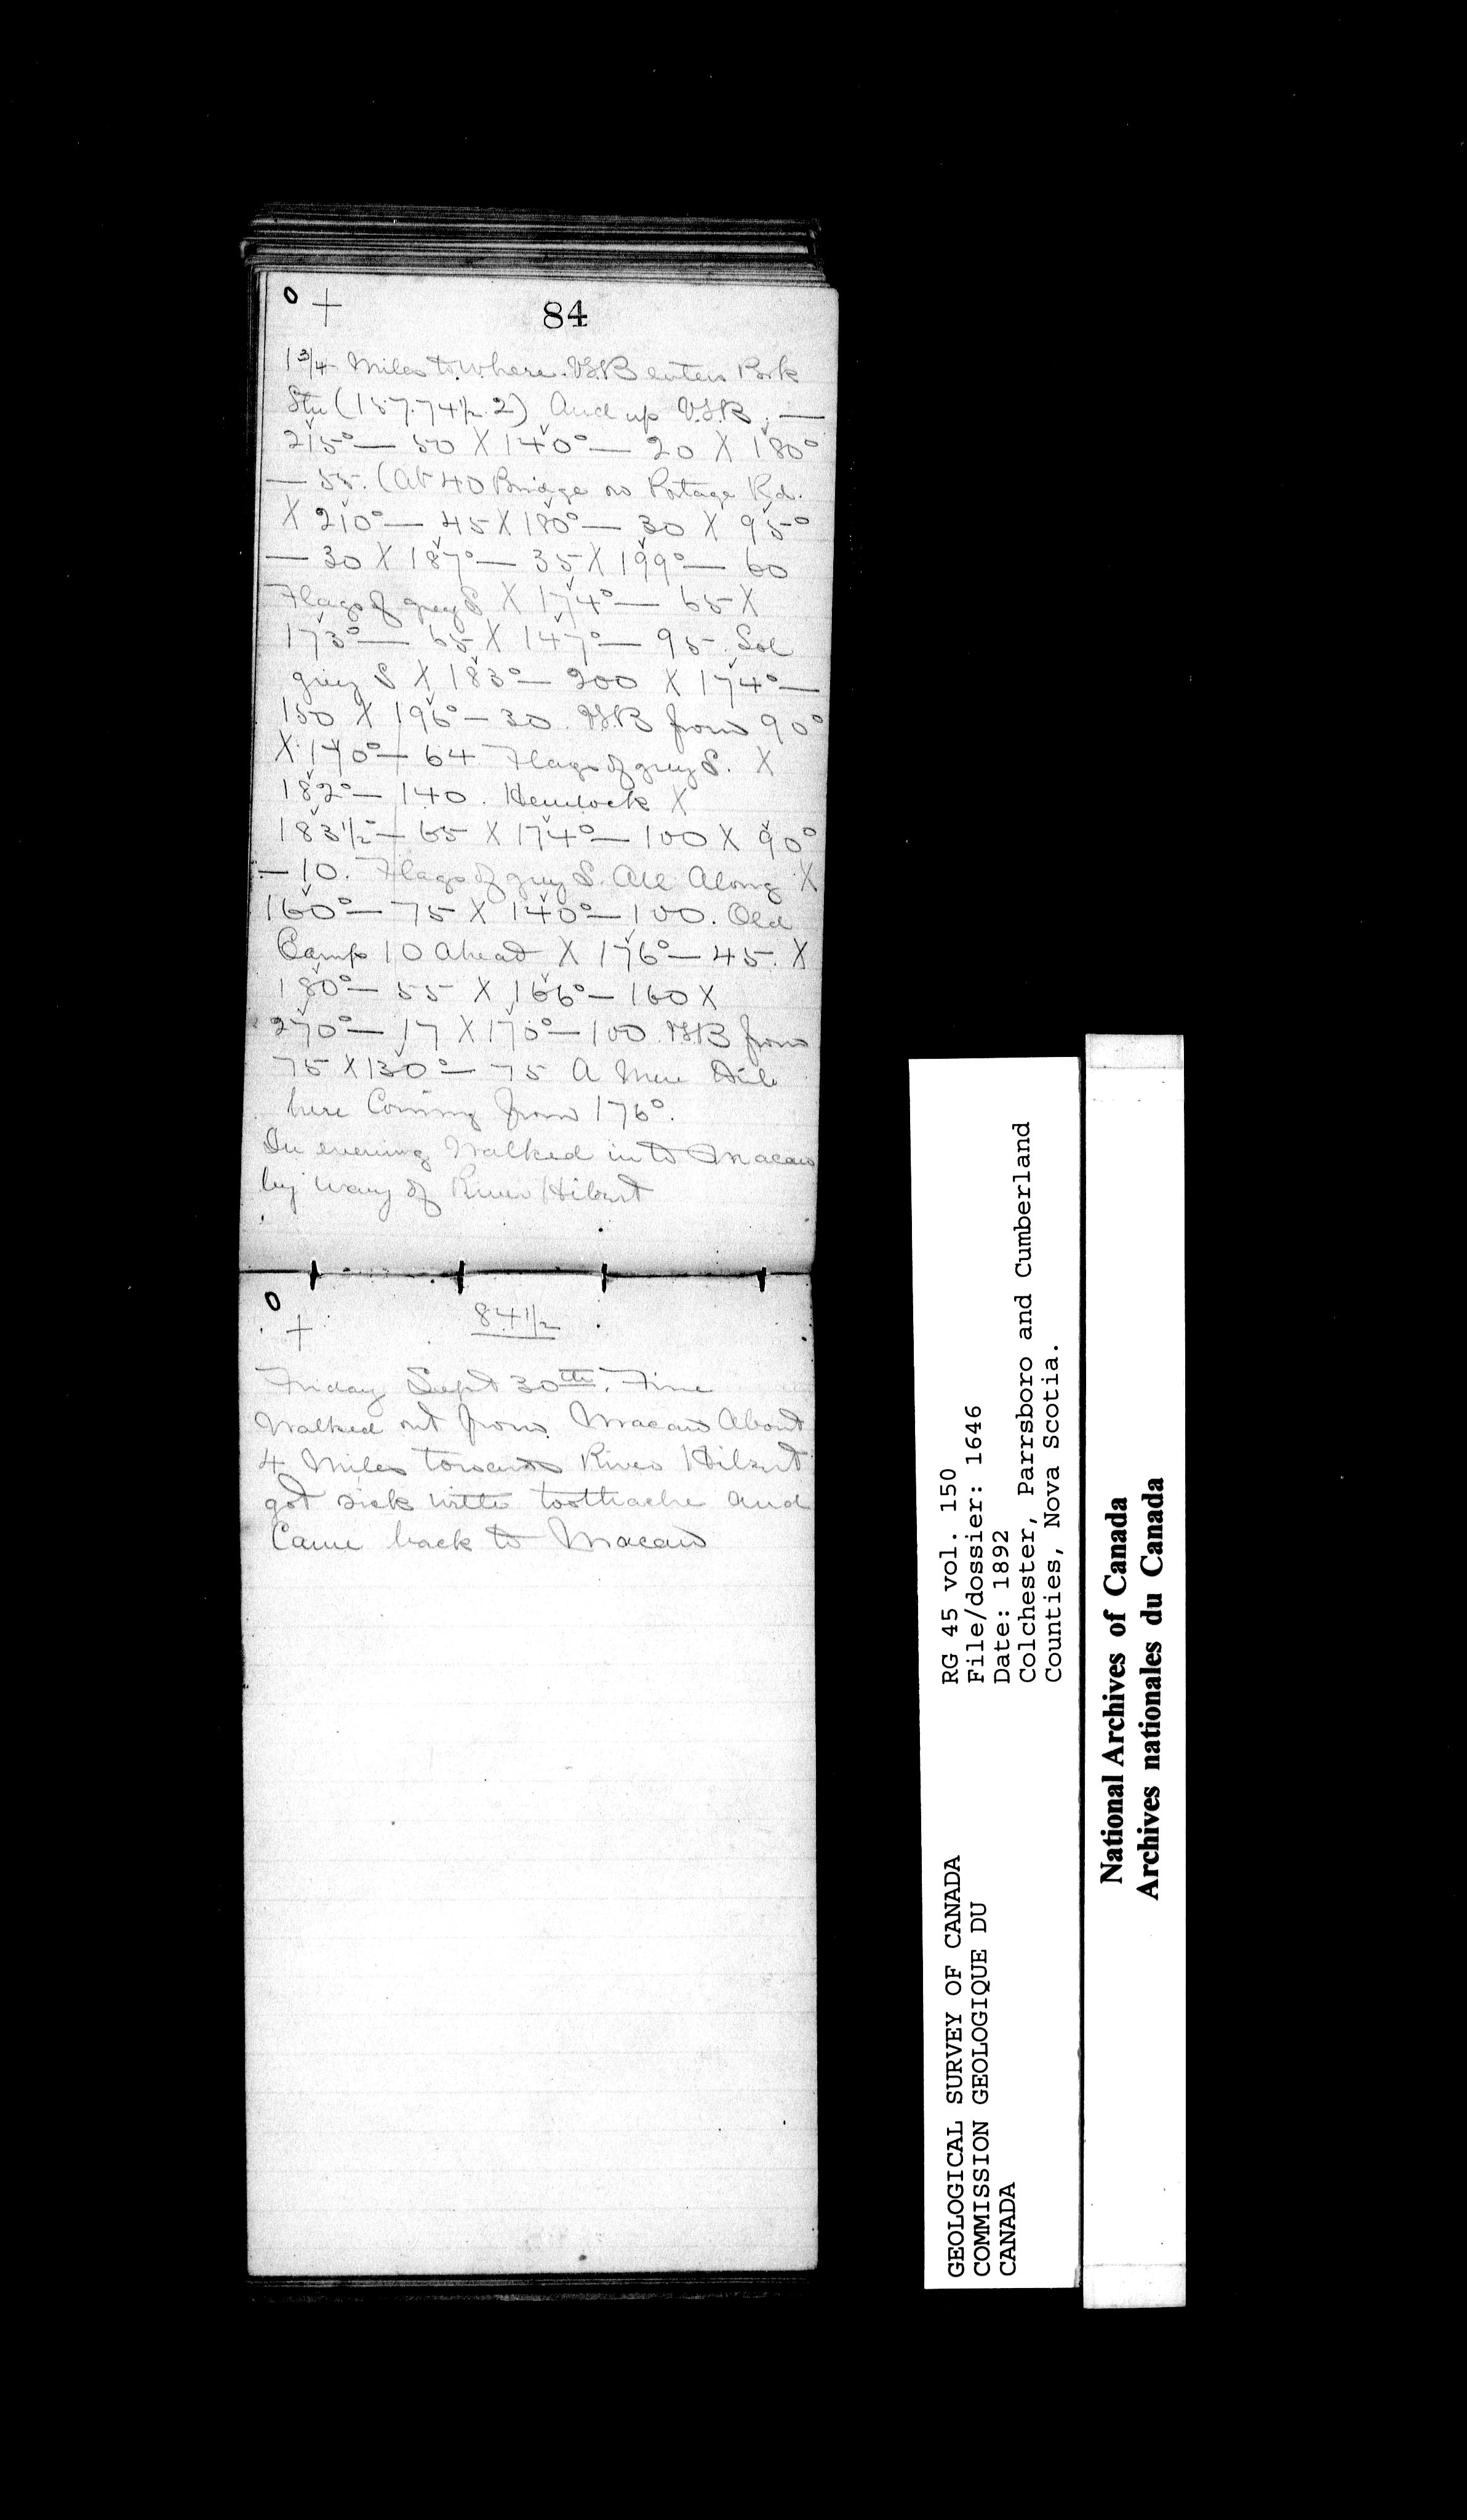 0 +
84
1 3/4 Miles to where V.S.B enters Pork
Str (157.74 1/2.2) And up V.S.B. —
215° — 50 X 140° — 20 X 180°
— 55. (At 40 Bridge on Portage Rd.
X 210° — 45 X 180° — 30 X 95°
— 30 X 187° — 35 X 199° — 60
Flags of grey S X 174° — 65 X
173° — 65 X 147° — 95. Sol
grey S X 183° — 200 X 174° —
150 X 196° — 30. V.S.B from 90°
X 170° — 64 Flags of grey S. X
182° — 140. Hemlock X
183 1/2° — 65 X 174° — 100 X 90°
— 10. Flags of grey S. All Along X
160° — 75 X 140° — 100. Old
Camp 10 Ahead X 176° — 45. X
180° — 55 X 166° — 160 X
270° — 17 X 170° — 100. V.S.B from
75 X 130° — 75 A Mere
here Coming from 176°.
In evening Walked in to Macan
by way of River Hibert
0
+
84 1/2
Friday Sept 30th. Fine
Walked out from Macan About
4 Miles towards River Hibert
got sick with toothache and
Came back to Macan
GEOLOGICAL SURVEY OF CANADA
COMMISSION GEOLOGIQUE DU
CANADA
RG 45 vol. 150
File/dossier: 1646
Date: 1892
Colchester, Parrsboro and Cumberland
Counties, Nova Scotia.
National Archives of Canada
Archives nationales du Canada